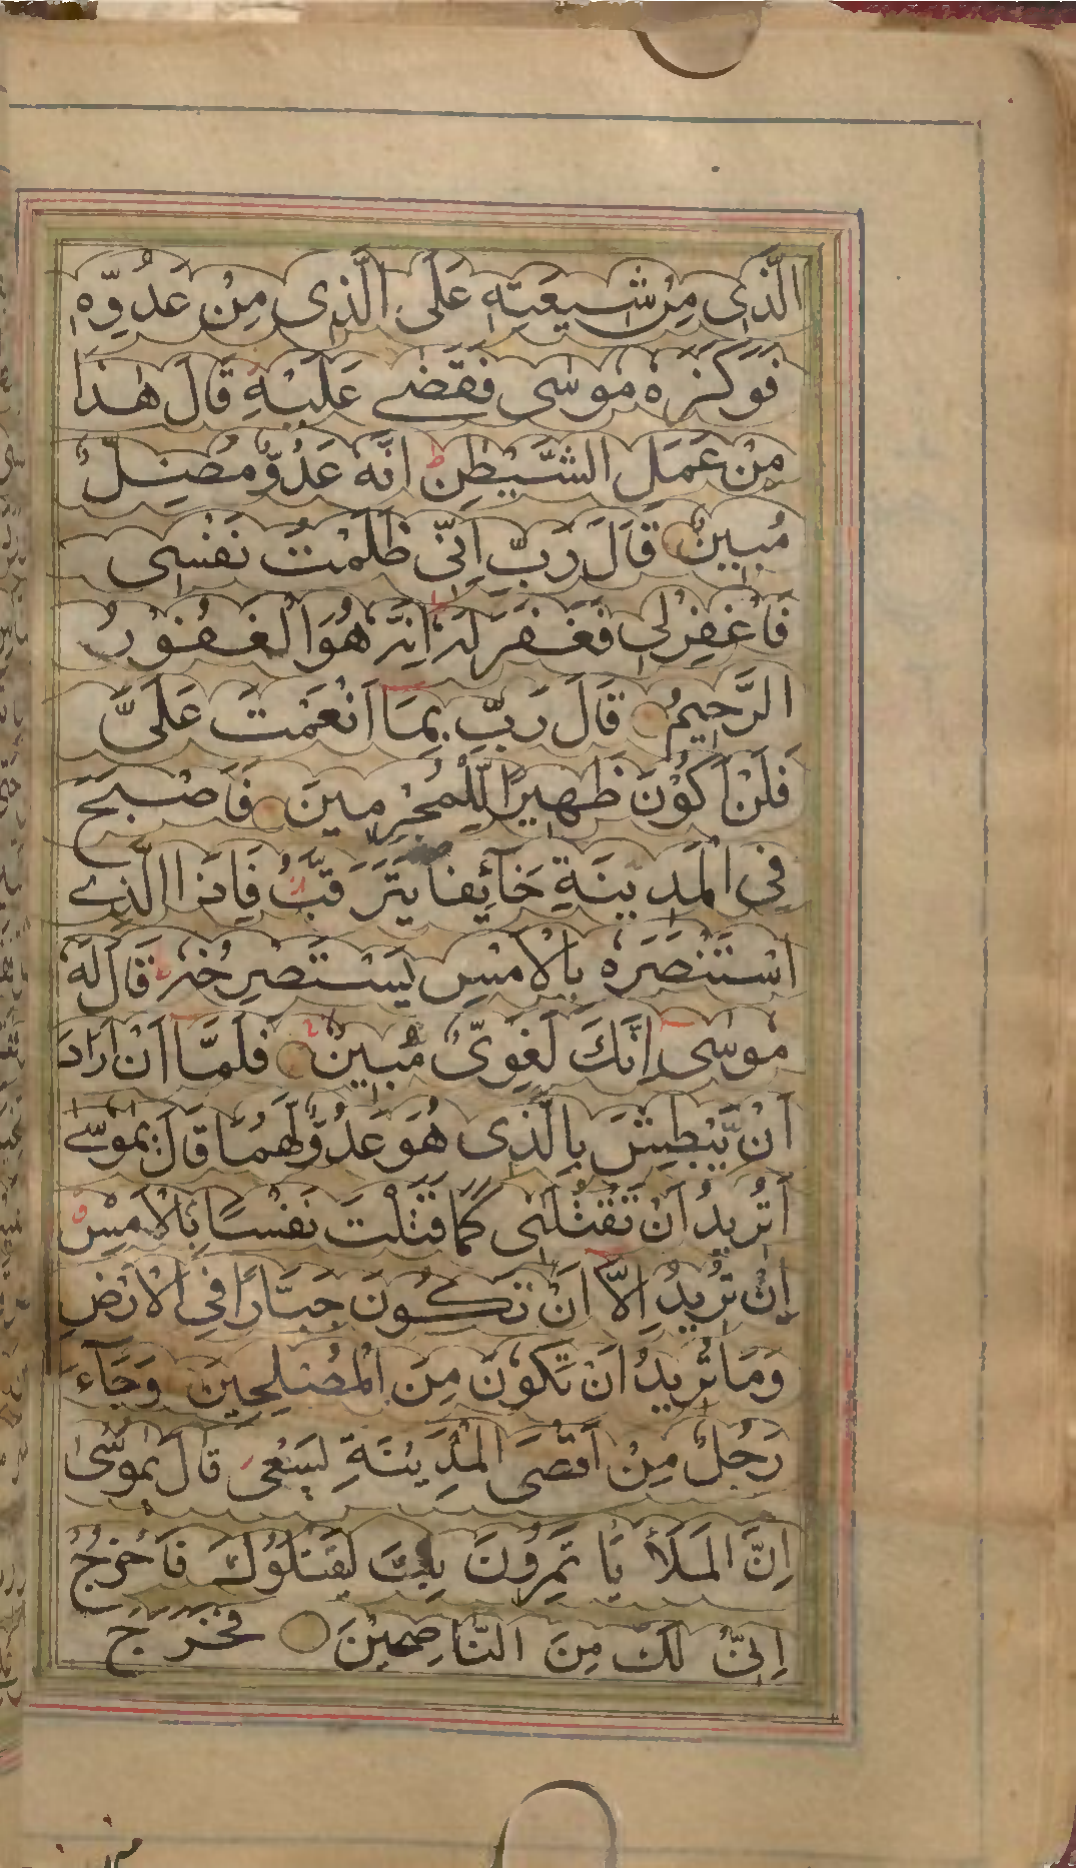 الَّذِی مِنْ شِیعَتِهٖ عَلَی الَّذِی مِنْ عَدُوِّهٖ
فَوَکَزَهٗ مُوسٰی فَقَضٰے عَلَیْهِ قَالَ هٰذَا
مِنْ عَمَلِ الشَّیْطٰنِ ط اِنَّهٗ عَدُوٌّ مُضِلٌّ
مُبِینٌ قَالَ رَبِّ اِنِّی ظَلَمْتُ نَفْسِی
فَاغْفِرْلِی فَغَفَرَ لَهٗ اِنَّهٗ هُوَ الْغَفُوْرُ
الرَّحِیمُ قَالَ رَبِّ بِمَا اَنْعَمْتَ عَلَیَّ
فَلَنْ اَکُوْنَ ظَهِیرًا لِّلْمُجْرِمِینَ فَاَصْبَحَ
فِی الْمَدِینَةِ خَآئِفًا یَتَرَقَّبُ فَاِذَا الَّذِے
اسْتَنْصَرَهٗ بِالْاَمْسِ یَسْتَصْرِخُهٗ قَالَ لَهٗ
مُوسٰی اِنَّكَ لَغَوِیٌّ مُبِینٌ فَلَمَّا اَنْ اَرَادَ
اَنْ یَّبْطِشَ بِالَّذِی هُوَ عَدُوٌّ لَهُمَا قَالَ یٰمُوسٰے
اَتُرِیدُ اَنْ تَقْتُلَنِی کَمَا قَتَلْتَ نَفْسًا بِالْاَمْسِ
اِنْ تُرِیدُ اِلَّا اَنْ تَکُونَ جَبَّارًا فِی الْاَرْضِ
وَمَا تُرِیدُ اَنْ تَکُونَ مِنَ الْمُصْلِحِینَ وَجَآءَ
رَجُلٌ مِنْ اَقْصَی الْمَدِینَةِ یَسْعٰی قَالَ یٰمُوسٰی
اِنَّ الْمَلَأَ یَاْتَمِرُونَ بِكَ لِیَقْتُلُوْكَ فَاخْرُجْ
اِنِّی لَكَ مِنَ النَّاصِحِیْنَ فَخَرَجَ